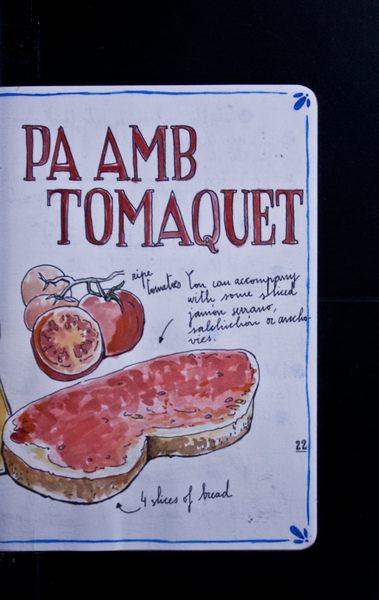 PA AMB
TOMAQUET
ripe
tomatoes
You can accompany
with some sliced
jamón serrano,
salchichón or ancho-
vies.
22
4 slices of bread